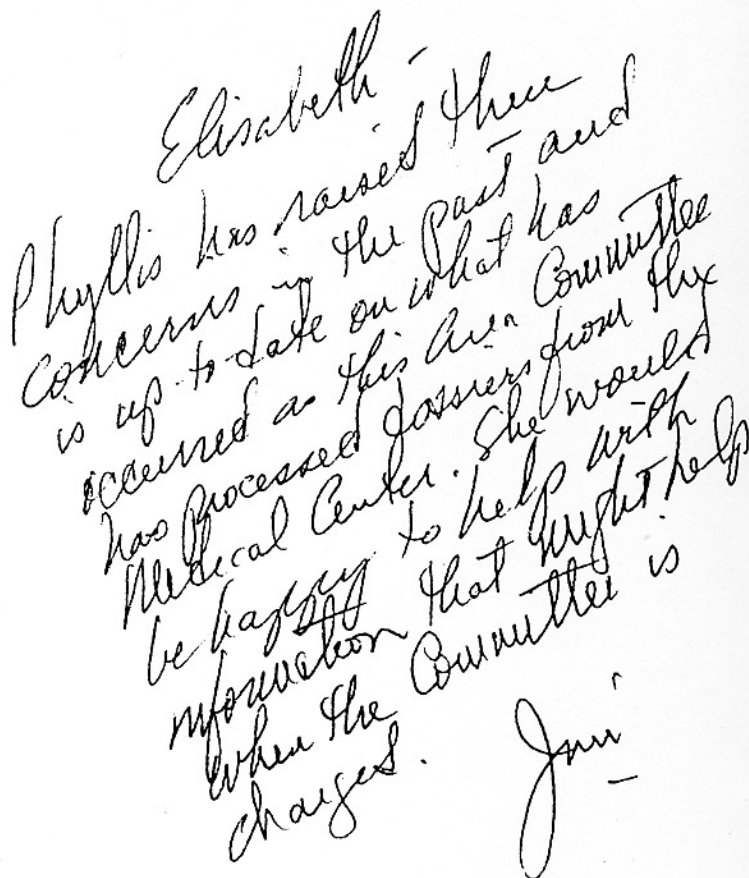 Elisabeth -
Phyllis has raised these
concerns in the past and
is up-to-date on what has
occurred as this Area Committee
has processed dossiers from the
Medical Center. She would
be happy to help with
information that might help
when the Committee is
charged.
Jim